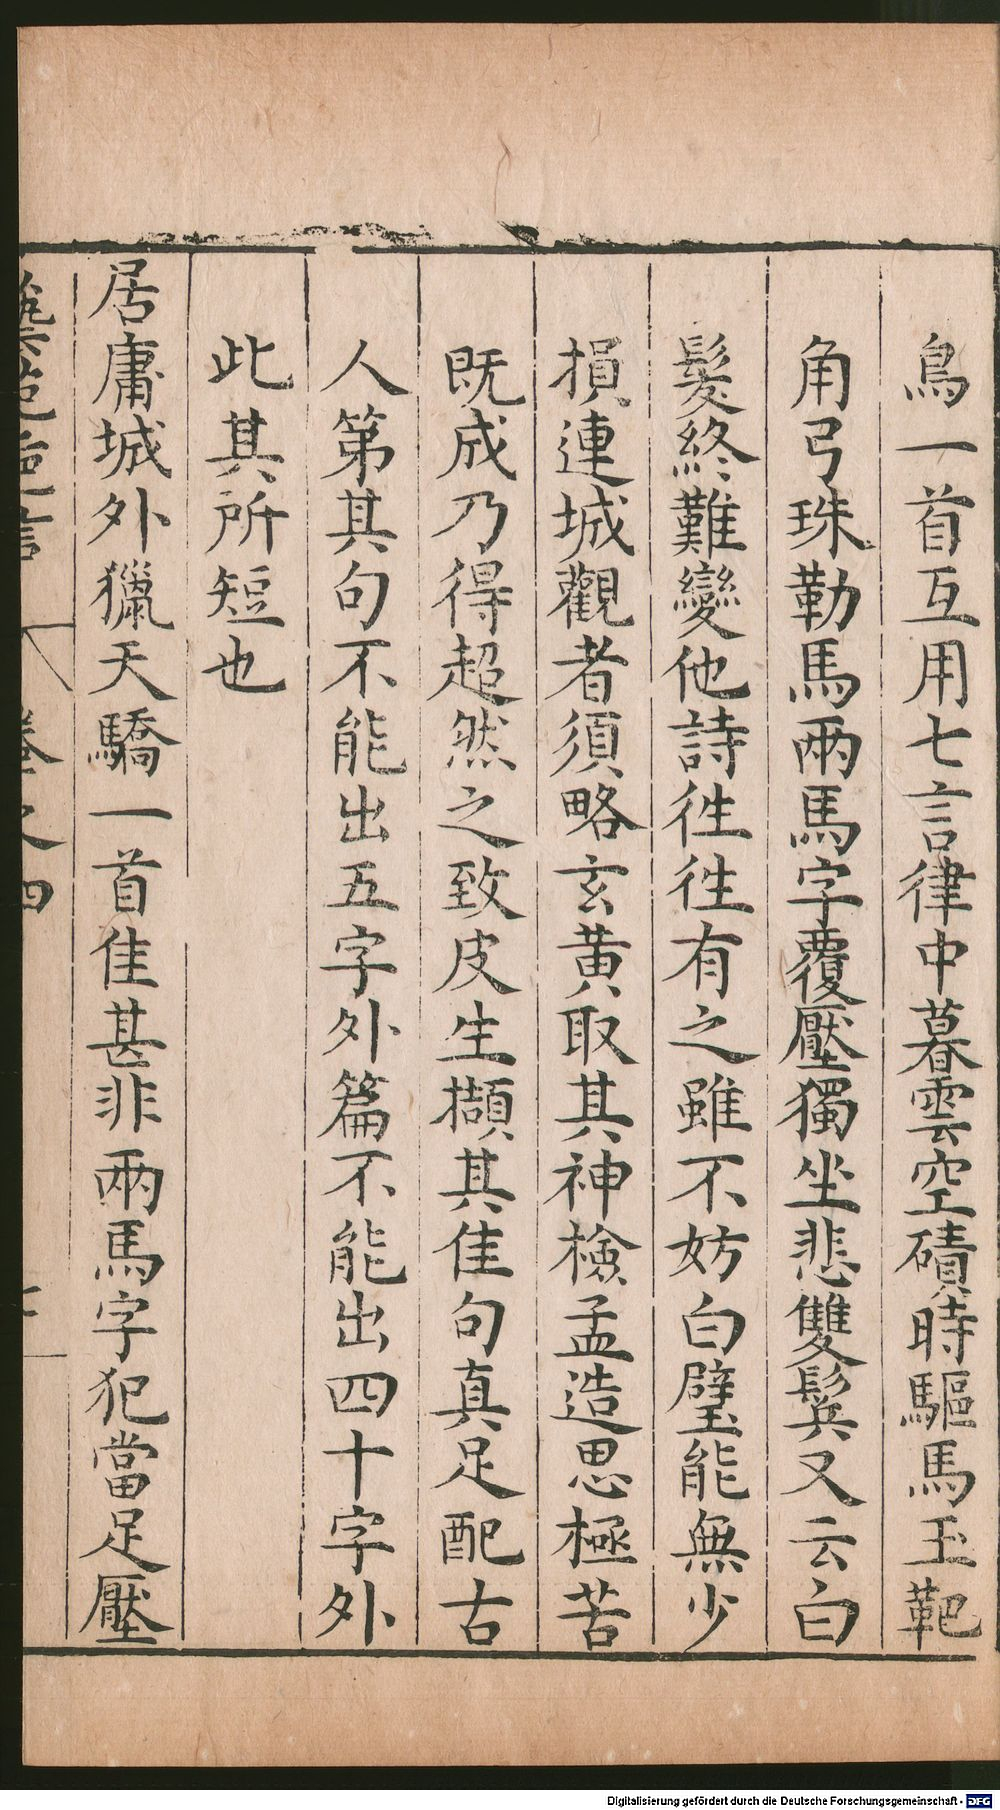 鳥一首互用七言律中暮雲空磧時驅馬玉靶
角弓珠勒馬兩馬字覆壓獨坐悲雙鬂又云白
髮終難變他詩徃徃有之雖不妨白璧能無少
損連城觀者須略玄黄取其神檢孟造思極苦
既成乃得超然之致皮生擷其佳句真足配古
人第其句不能出五字外篇不能出四十字外
此其所短也
居庸城外獵天驕一首佳甚非兩馬字犯當足壓
藝苑卮言 卷之四
Digitalisierung gefördert durch die Deutsche Forschungsgemeinschaft - DFG